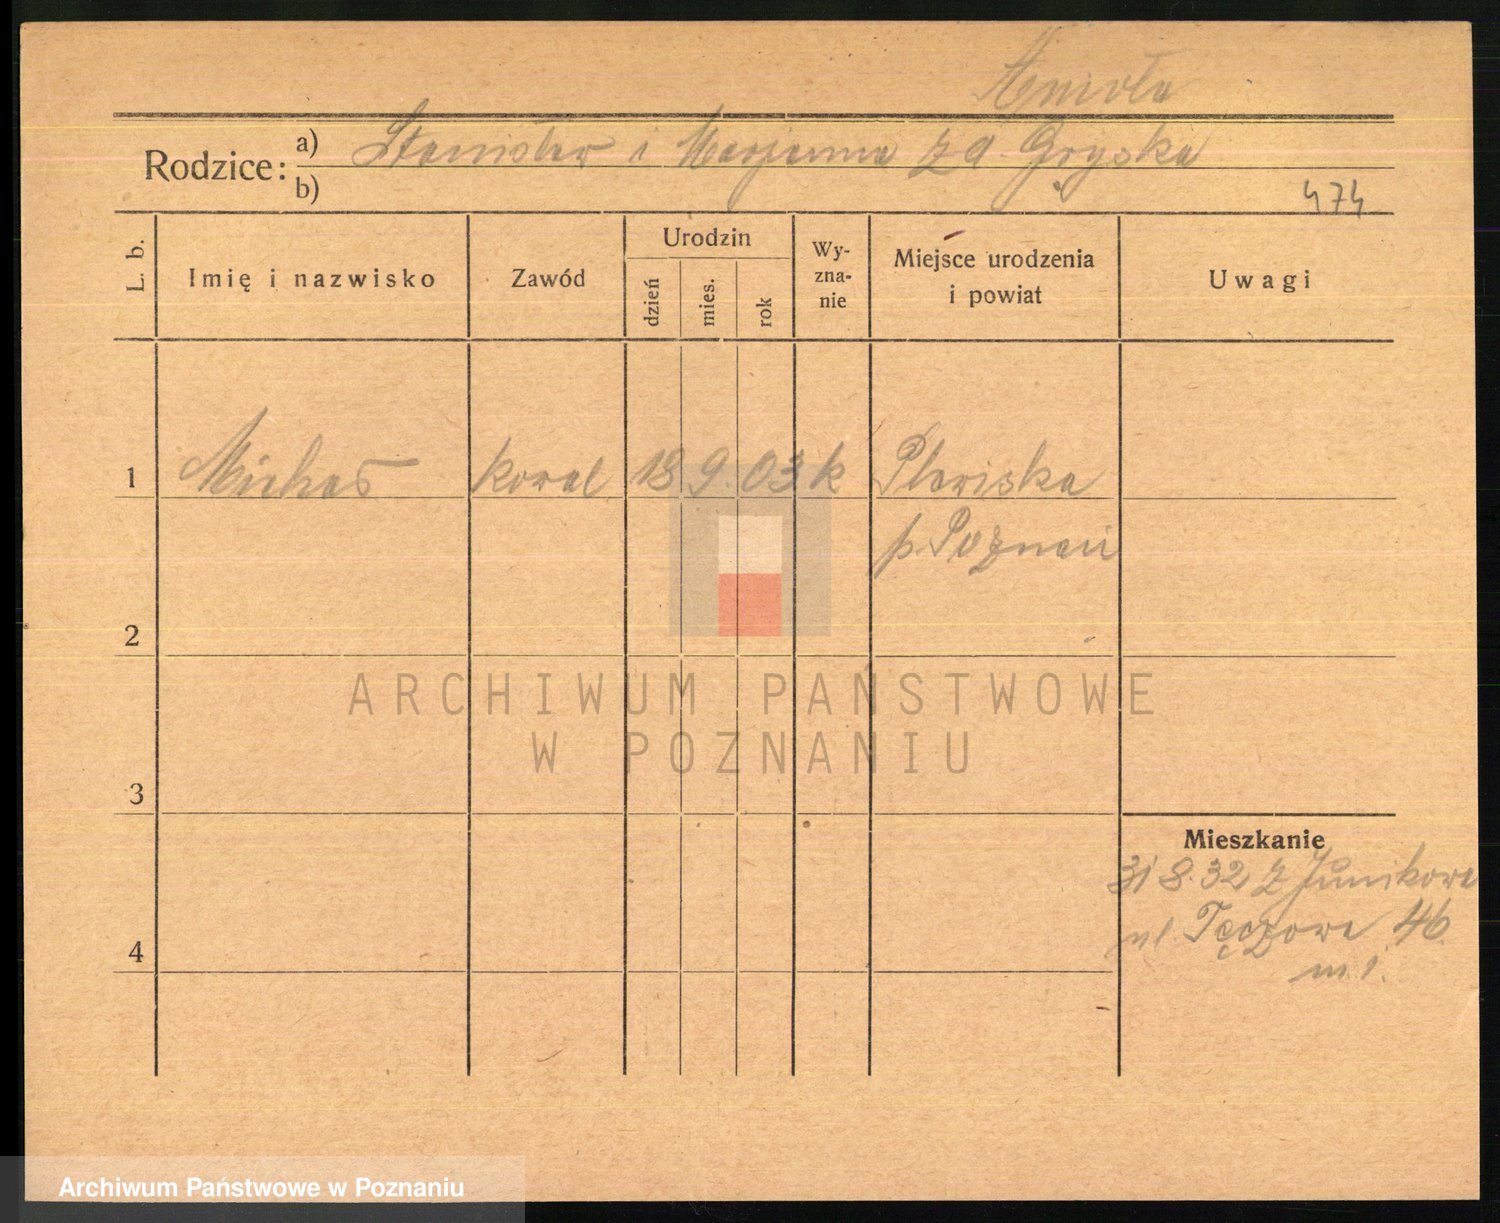 Anioła
Rodzice: a) Stanisław i Marjanna z d. Gryska
b)
474
L. b.
Imię i nazwisko
Zawód
Urodzin
dzień
mies.
rok
Wy-
zna-
nie
Miejsce urodzenia
i powiat
Uwagi
1 Michał kowal 18 9. 03 k Plewiska
p. Poznań
2
ARCHIWUM PAŃSTWOWE
W POZNANIU
3
Mieszkanie
31 8. 32 z Junikowa
ul. Tęczowa 46
m 1.
4
Archiwum Państwowe w Poznaniu